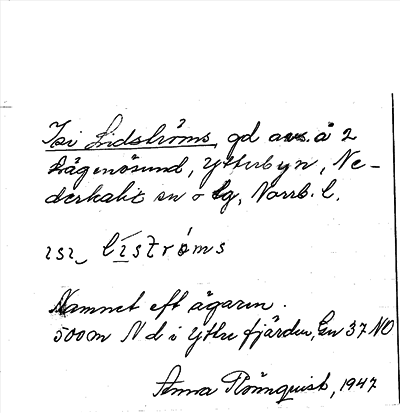 Isi Lidströms, gd avs. å 2
Lågenösund, Ytterbyn, Ne-
derkalix sn o lg, Norrb. l.
ısı‿ líströms
Namnet eft ägaren.
500m N d i Yttre fjärden, En 37 NO
Anna Rönnquist, 1947